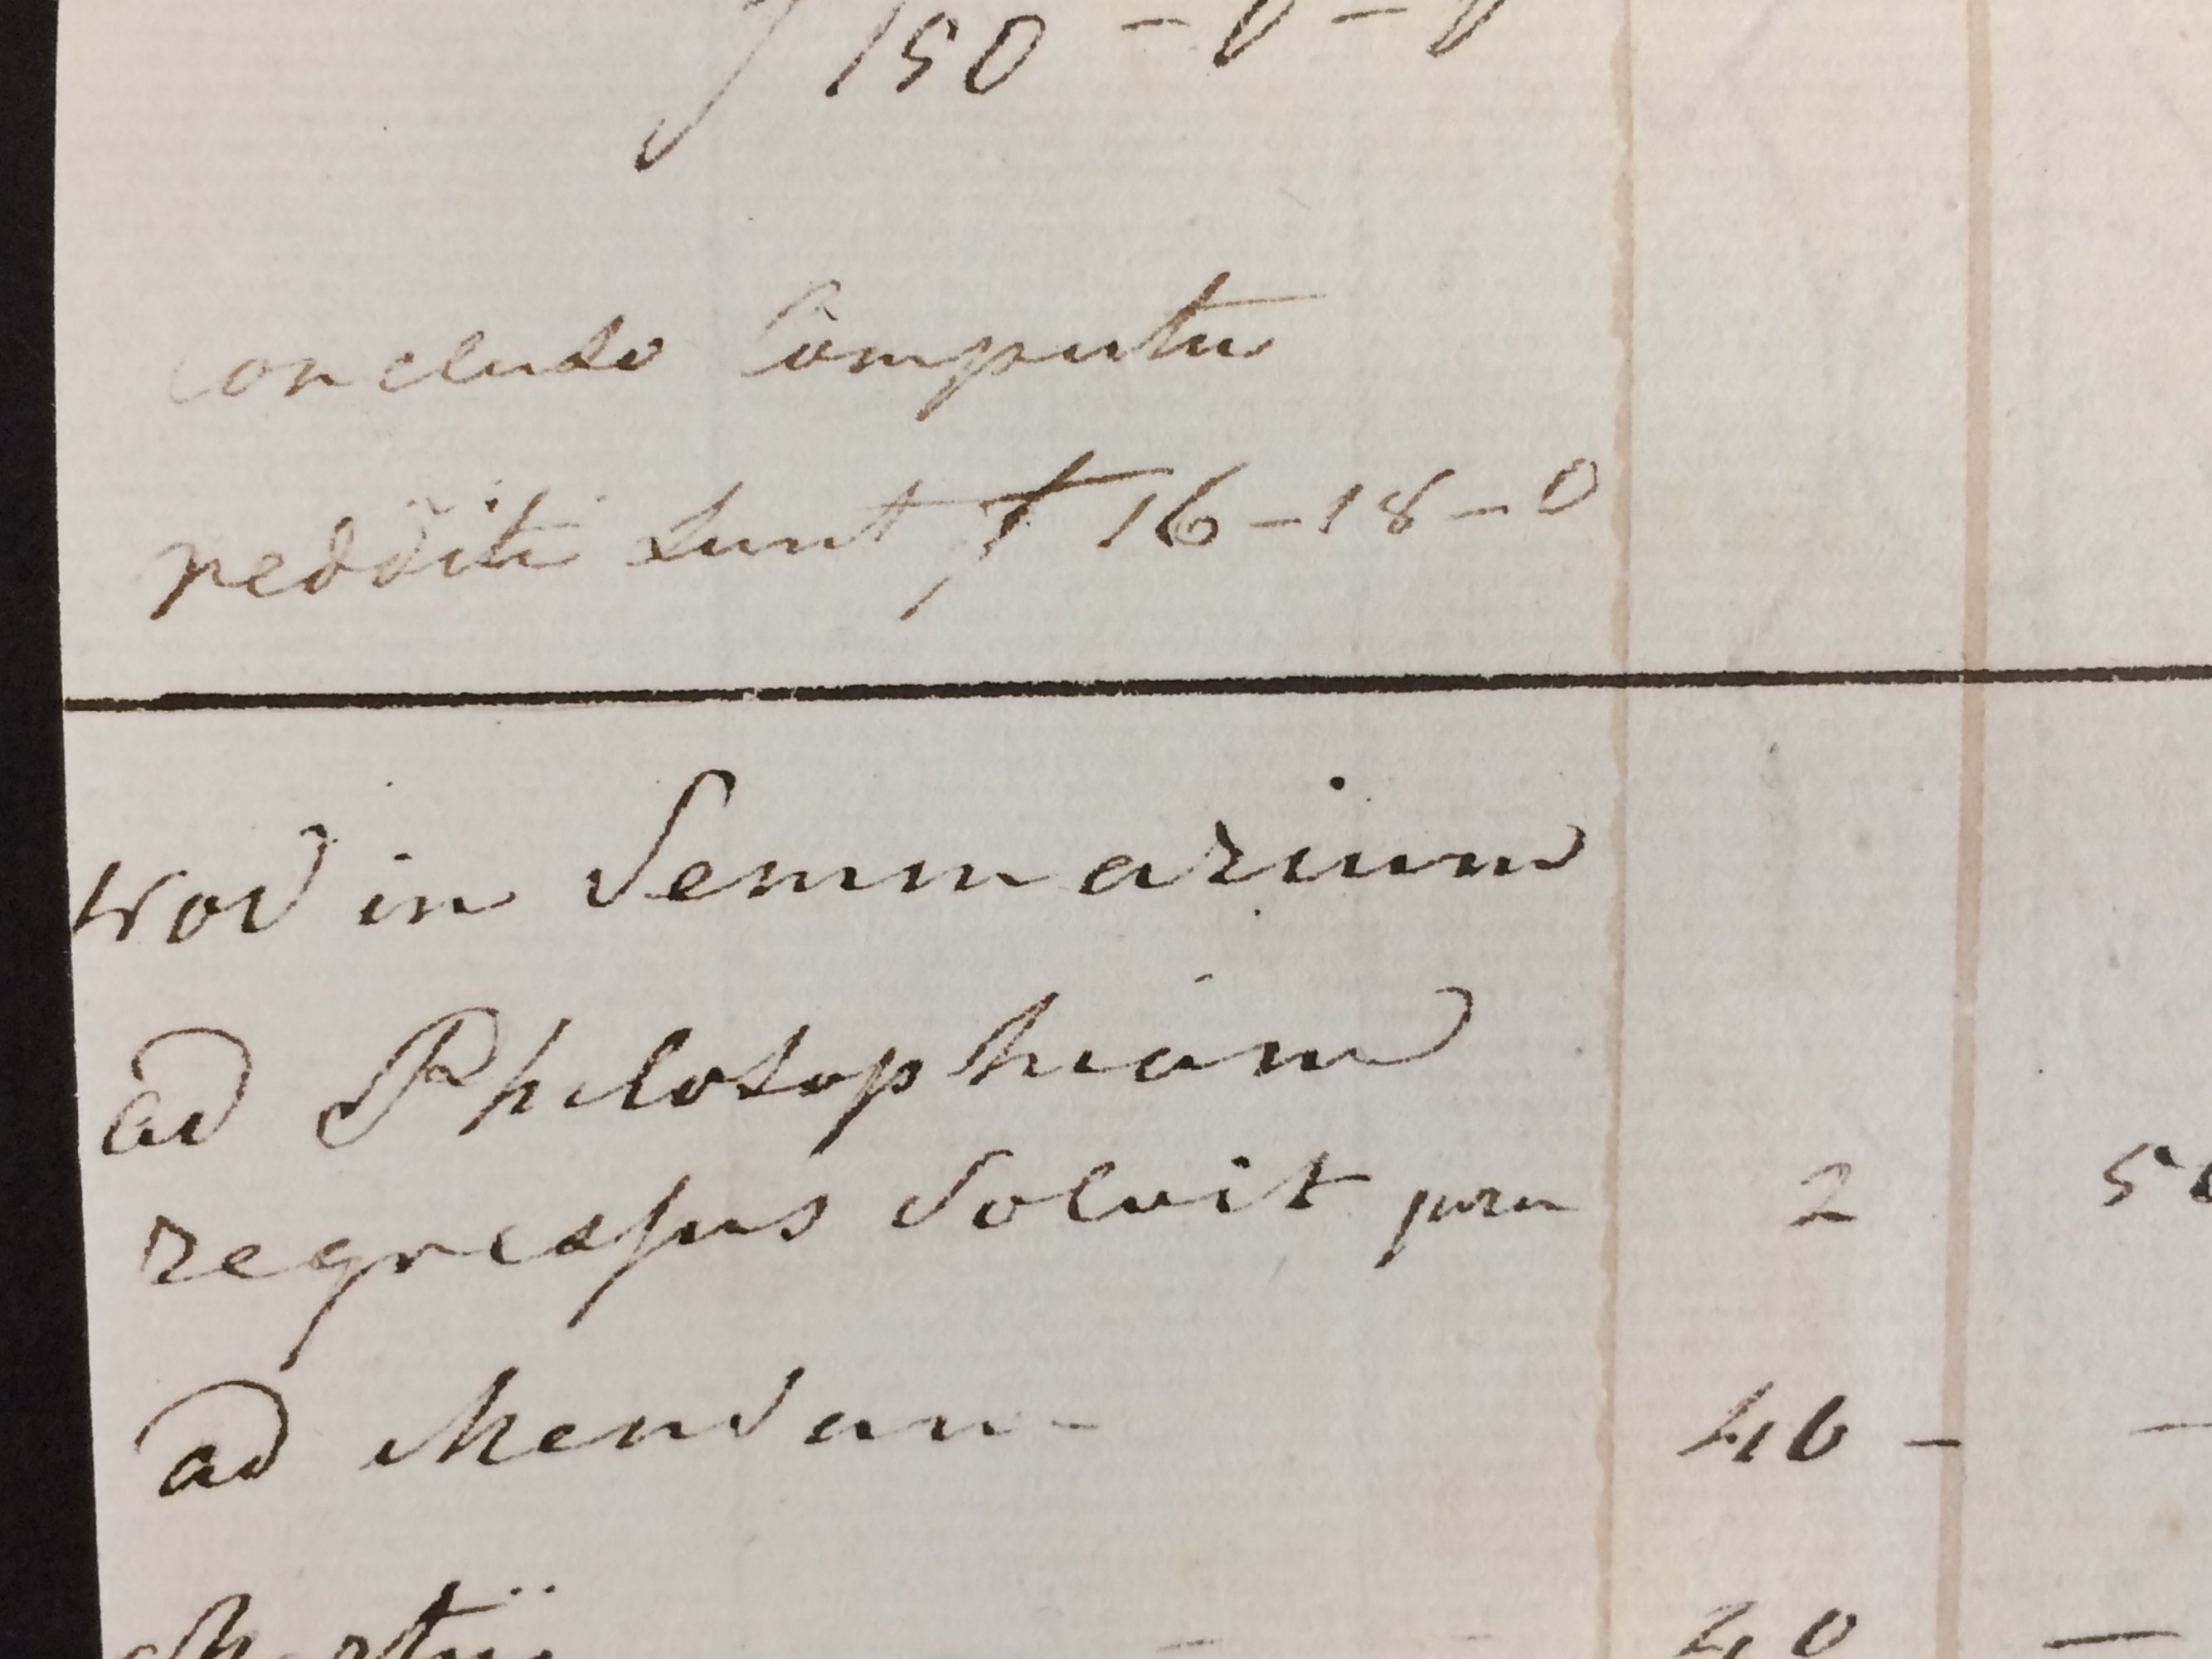 ƒ 150 - 0 - 0
concluso Computu
redditi sunt ƒ 16-18-0
in Seminarium
ad Philosophiam
regressus Solvit 2
ad Mensam - 40 - -
Martii - - 40 -